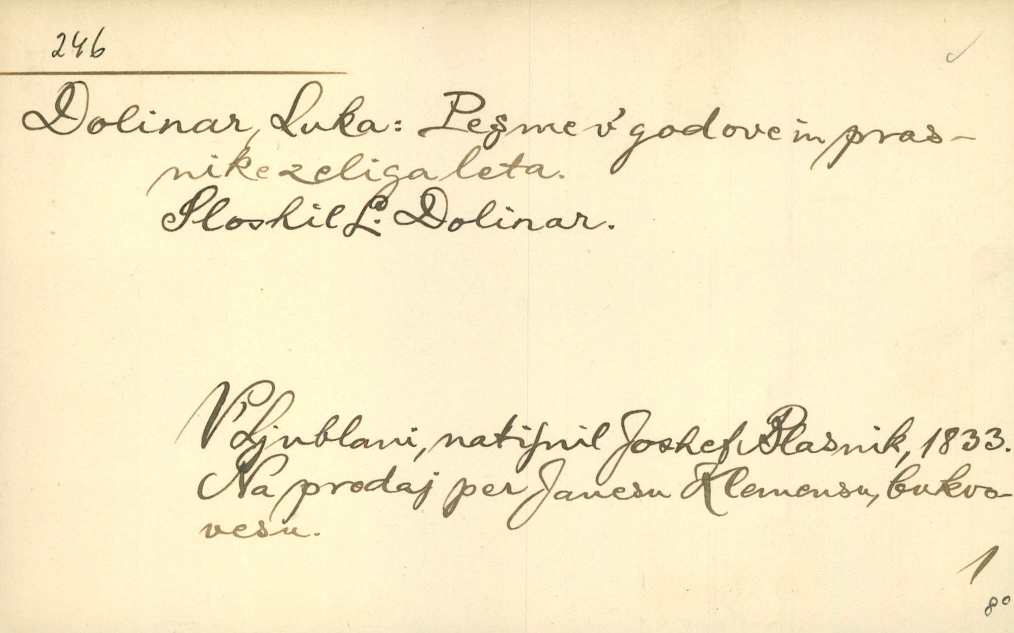 246
Dolinar, Luka: Peſme v' godove in pras-
nike zeliga leta.
Sloshil L. Dolinar.
V' Ljublani, natiſnil Joshef Blasnik, 1833.
Na prodaj per Janesu Klemensu, bukvo-
vesu.
1
8°